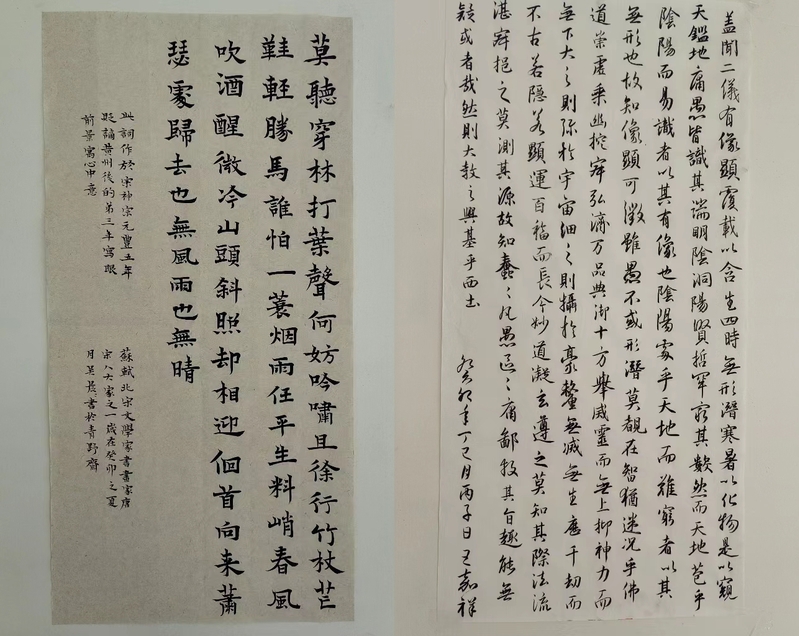 莫聽穿林打葉聲何妨吟嘯且徐行竹杖芒
鞋輕勝馬誰怕一蓑烟雨任平生料峭春風
吹酒醒微冷山頭斜照却相迎佪首向来蕭
瑟處歸去也無風雨也無晴
此詞作於宋神宗元豐五年
貶謫黄州後的第三年寫眼
前景寫心中意
蘇軾北宋文學家書畫家唐
宋八大家之一歲在癸卯之夏
月吴晨書於青野齋
盖聞二儀有像顯覆載以含生四時無形潛寒暑以化物是以窺
天鑑地庸愚皆識其端明陰洞陽賢哲罕窮其數然而天地苞乎
陰陽而易識者以其有像也陰陽處乎天地而難窮者以其
無形也故知像顯可徵雖愚不或形潛莫覩在智猶迷况乎佛
道崇虛乘幽控寂弘濟万品典御十方舉威靈而無上抑神力而
無下大之則弥於宇宙細之則攝於豪釐無滅無生歷千劫而
不古若隱若顯運百福而長今妙道凝玄遵之莫知其際法流
湛寂挹之莫測其源故知蠢々凡愚區々庸鄙投其旨趣能無
疑或者哉然則大教之興基乎西土
癸卯年丁巳月丙子日王嘉祥